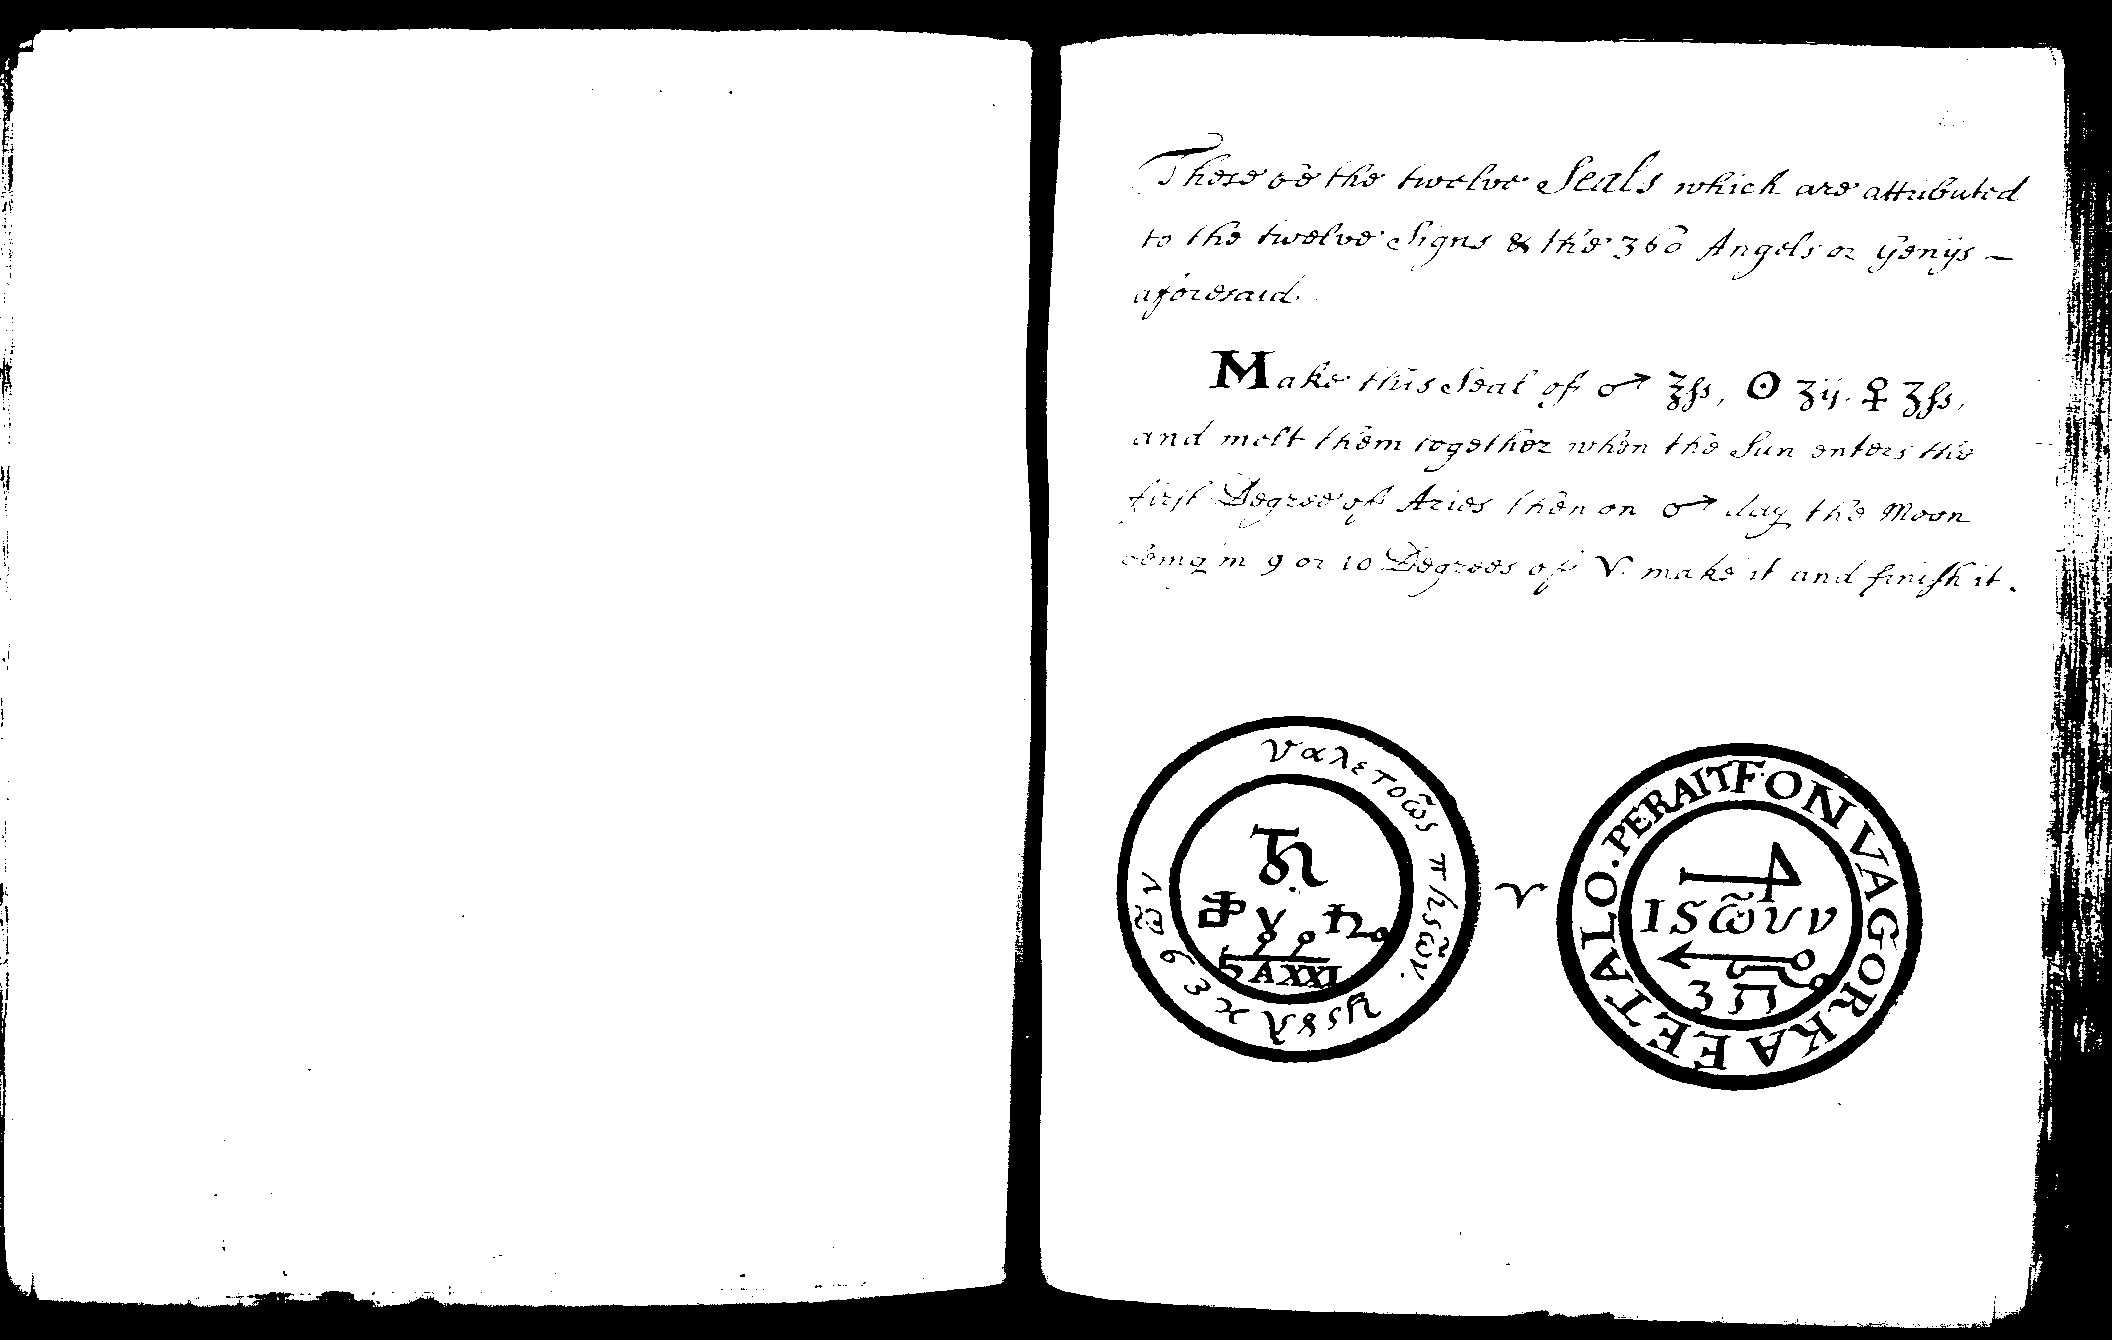 These be the twelve Seals which are attributed
to the twelve Signs & the 360 Angels or Genijs —
aforesaid.
Make this Seal of ♂ ℥ſs, ☉ ʒij. ♀ ʒſs,
and melt them together when the Sun enters the
first Degree of Aries then on ♂ day the Moon
being in 9 or 10 Degrees of ♈ make it and finish it.
ναλετοω̃ς πhςω̃ν.
5 AXXI
♈
TALO. PERAITFON VAGOR KAEE
ISω̃υν